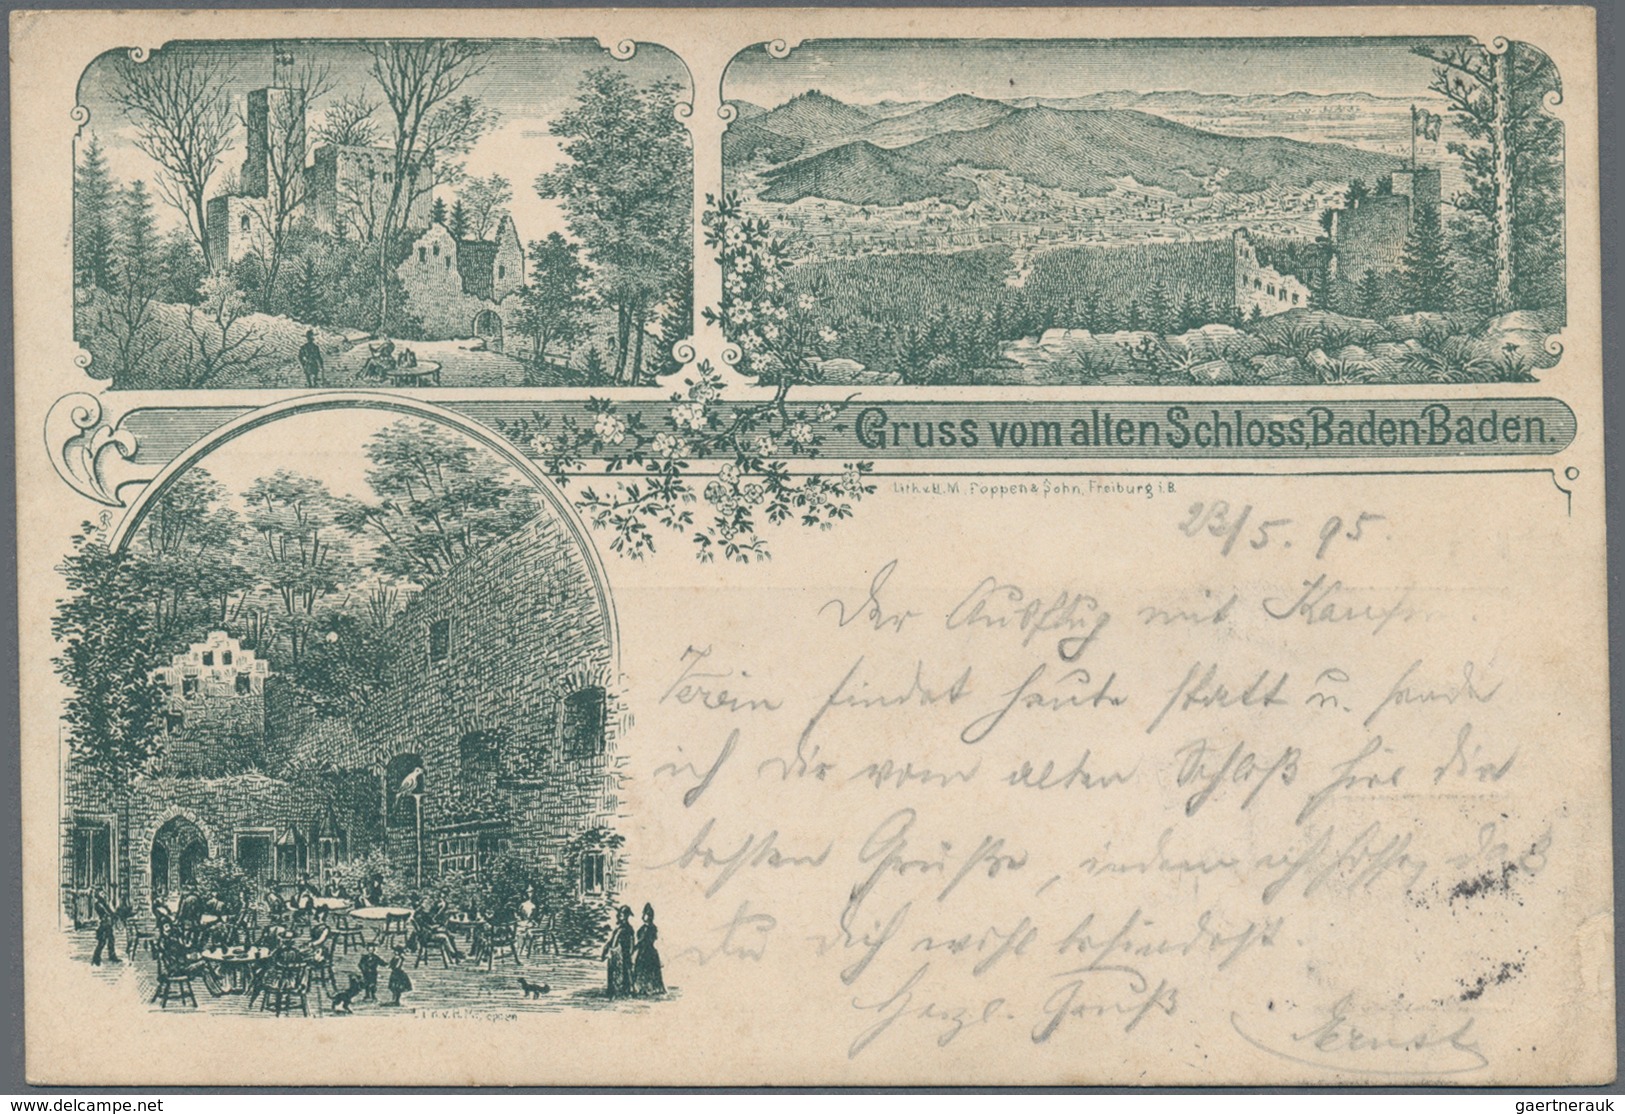 Gruss vom alten Schloss, Baden-Baden.
Lith. v. H. M. Poppen & Sohn, Freiburg i. B.
23/5. 95.
Der Ausflug mit Kaufm.
Verein findet heute statt u. sende
ich Dir vom alten Schloß hier die
besten Grüße, indem ich hoffe, daß
Du Dich wohl befindest.
Herzl. Gruß
Ernst
Lith. v. H. M. Poppen
gaertnerauk@delcampe.net